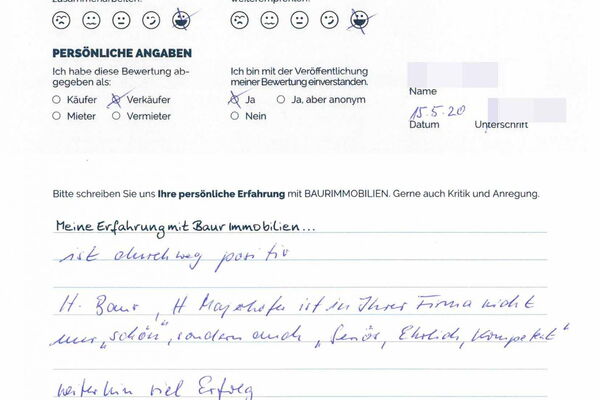 zusammenarbeiten?
weiterempfehlen?
PERSÖNLICHE ANGABEN
Ich habe diese Bewertung ab-
gegeben als:
Käufer
Verkäufer
Mieter
Vermieter
Ich bin mit der Veröffentlichung
meiner Bewertung einverstanden.
Ja
Ja, aber anonym
Nein
Name
15.5.20
Datum
Unterschrift
Bitte schreiben Sie uns Ihre persönliche Erfahrung mit BAURIMMOBILIEN. Gerne auch Kritik und Anregung.
Meine Erfahrung mit Baur Immobilien...
ist durchweg positiv
H. Baur, H Mayrhofer ist in Ihrer Firma nicht
nur „schön", sondern auch „Seriös, Ehrlich, Kompetent"
weiterhin viel Erfolg